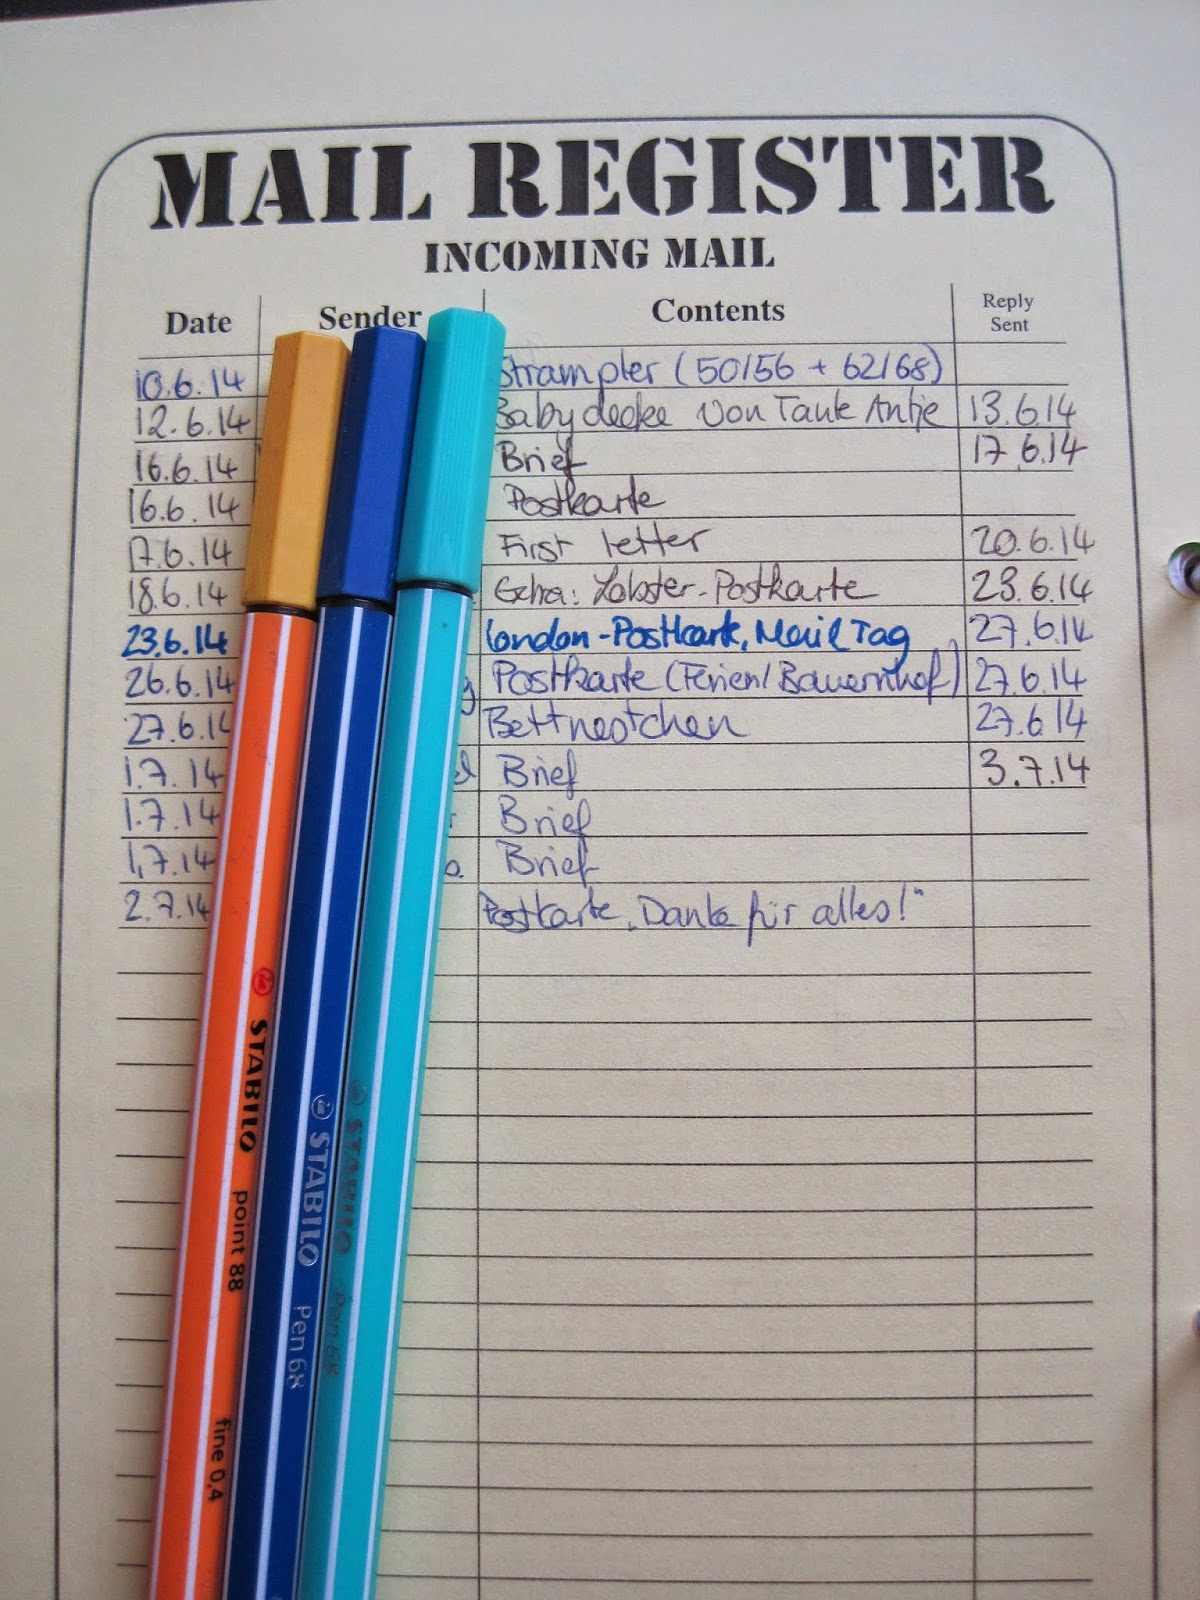 MAIL REGISTER
INCOMING MAIL
Date Sender Contents Reply Sent
10.6.14 Strampler (50/56 + 62/68)
12.6.14 Babydecke von Tante Antje 13.6.14
16.6.14 Brief 17.6.14
16.6.14 Postkarte
17.6.14 First letter 20.6.14
18.6.14 Extra: Lobster-Postkarte 23.6.14
23.6.14 London-Postkarte, Mail Tag 27.6.14
26.6.14 Postkarte (Ferien/Bauernhof) 27.6.14
27.6.14 Bettnestchen 27.6.14
1.7.14 Brief 3.7.14
1.7.14 Brief
1.7.14 Brief
2.7.14 Postkarte „Danke für alles!“
STABILO point 88 fine 0,4
STABILO Pen 68
STABILO Pen 68